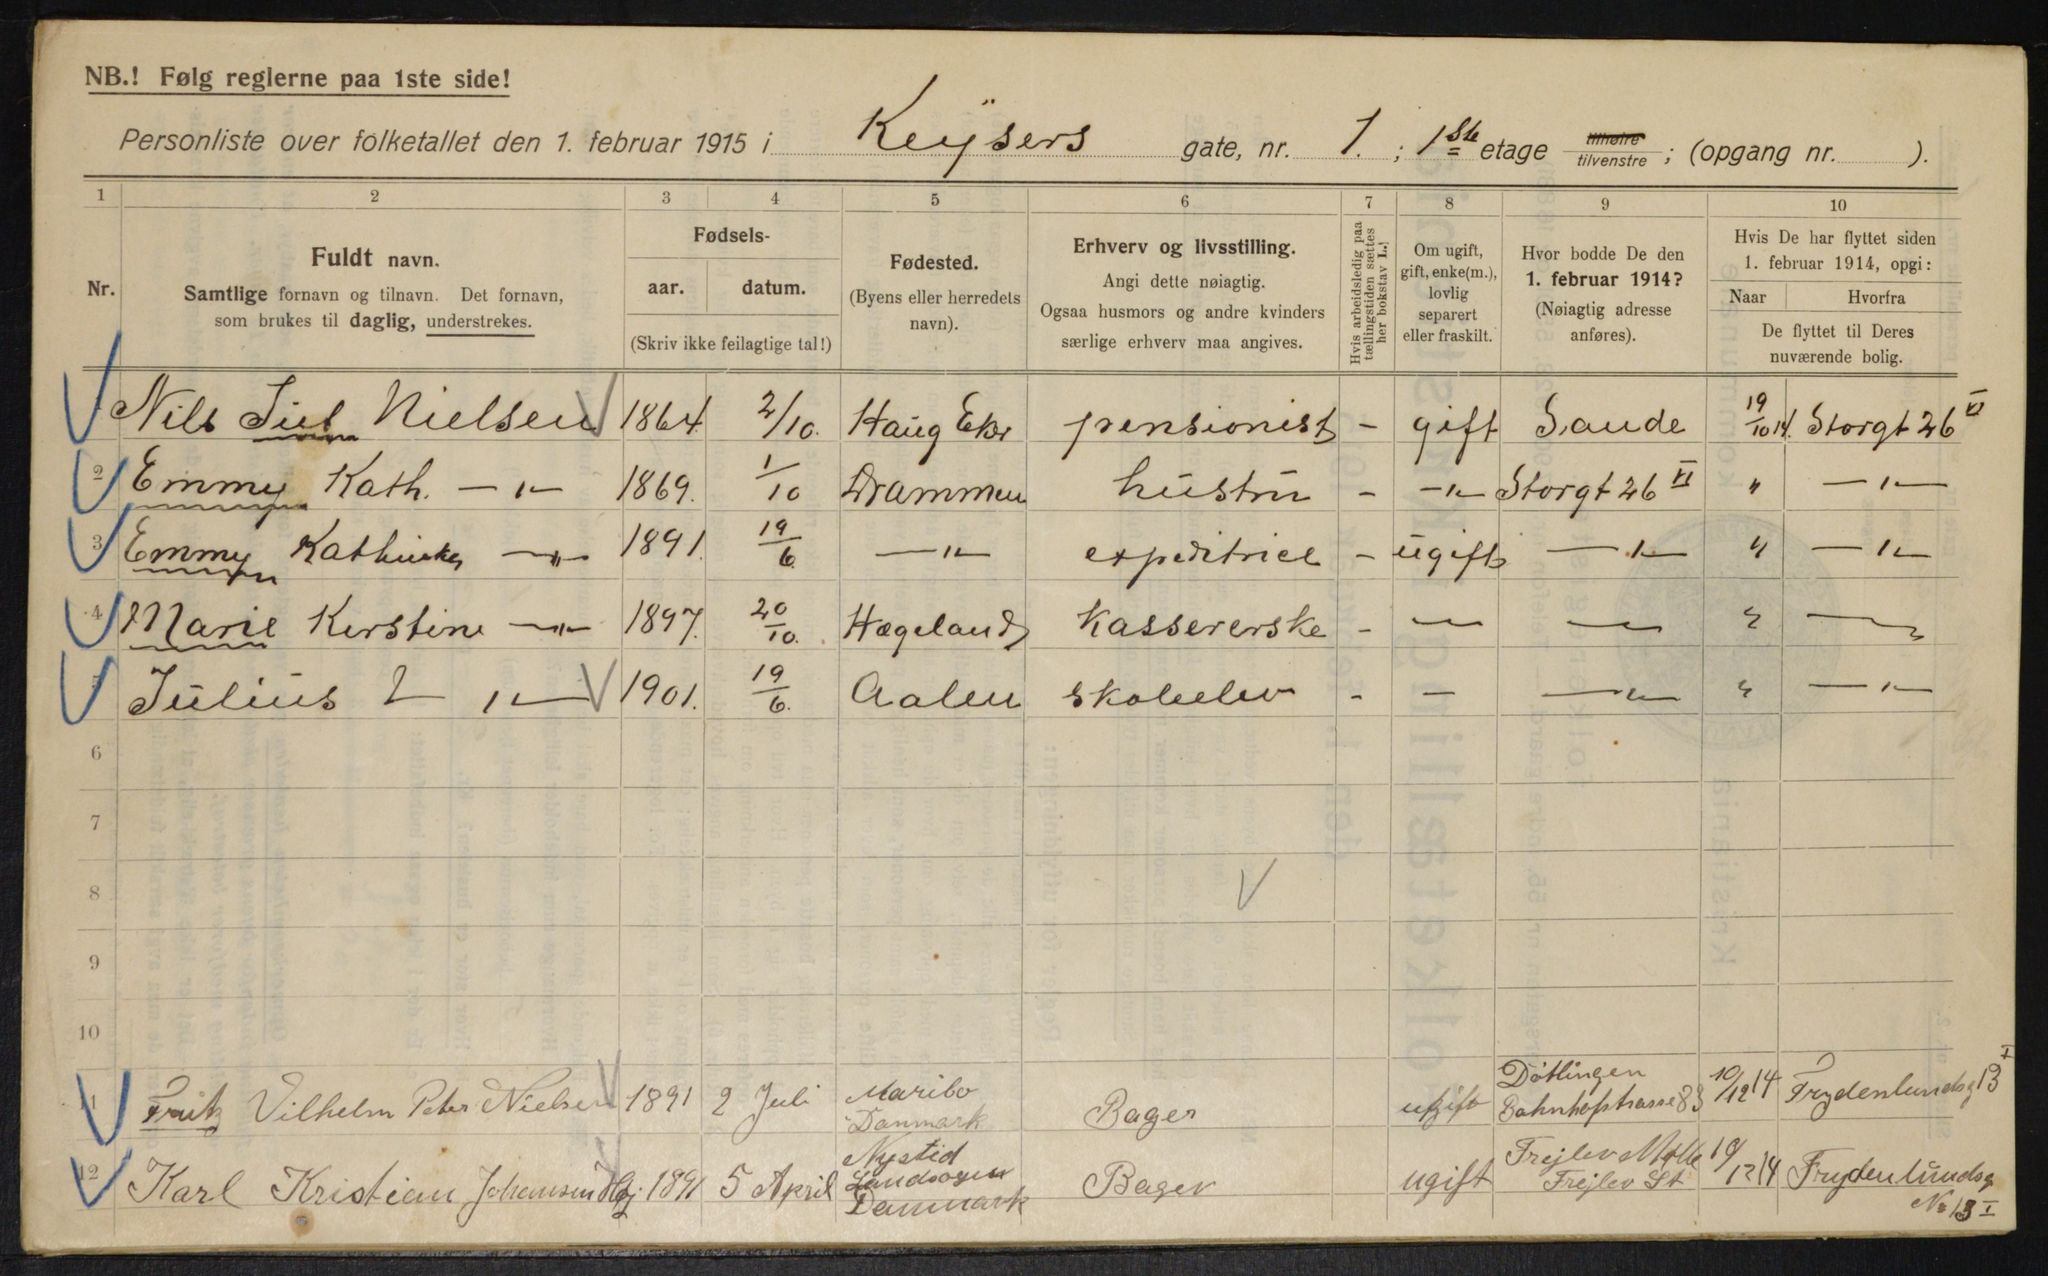 NB.! Følg reglerne paa 1ste side!
Personliste over folketallet den 1. februar 1915 i Keÿsers gate, nr. 1. ; 1ste etage tilhøire tilvenstre ; (opgang nr. ).
1 2 3 4 5 6 7 8 9 10
Nr.
Fuldt navn.
Samtlige fornavn og tilnavn. Det fornavn,
som brukes til daglig, understrekes.
Fødsels-
aar. datum.
(Skriv ikke feilagtige tal!)
Fødested.
(Byens eller herredets
navn).
Erhverv og livsstilling.
Angi dette nøiagtig.
Ogsaa husmors og andre kvinders
særlige erhverv maa angives.
Hvis arbeidsledig paa
tællingstiden sættes
her bokstav L.!
Om ugift,
gift, enke(m.),
lovlig
separert
eller fraskilt.
Hvor bodde De den
1. februar 1914?
(Nøiagtig adresse
anføres).
Hvis De har flyttet siden
1. februar 1914, opgi:
Naar Hvorfra
De flyttet til Deres
nuværende bolig.
Nils Juel Nielsen 1864. 2/10. Haug Eker pensionist - gift Sande 19/10 14. Storgt 26 VI
2 Emmy Kath. — " — 1869. 1/10 Drammen hustrü - — " — Storgt 26 VI " — " —
3 Emmy Kathinka — " — 1891. 19/6. — " — expeditrice - ugift — " — " — " —
4 Marie Kirstine — " — 1897. 20/10. Hægeland Kassererske - — — " —
5 Jülius — " — 1901. 19/6. Aalen skoleelev - - — " — " — " —
6
7
8
9
10
11 Fritz Vilhelm Peter Nielsen 1891 2 Juli Maribo Danmark Bager ugift Dötlingen Bahnhofstrasse 83 10/12 14 Frydenlundsg 13 I
12 Karl Kristian Johansen 1891 5 April Nysted Landsogen Danmark Bager ugift Frejlev Mølle Frejlev St 10/12 14 Frydenlundsg No 13 I